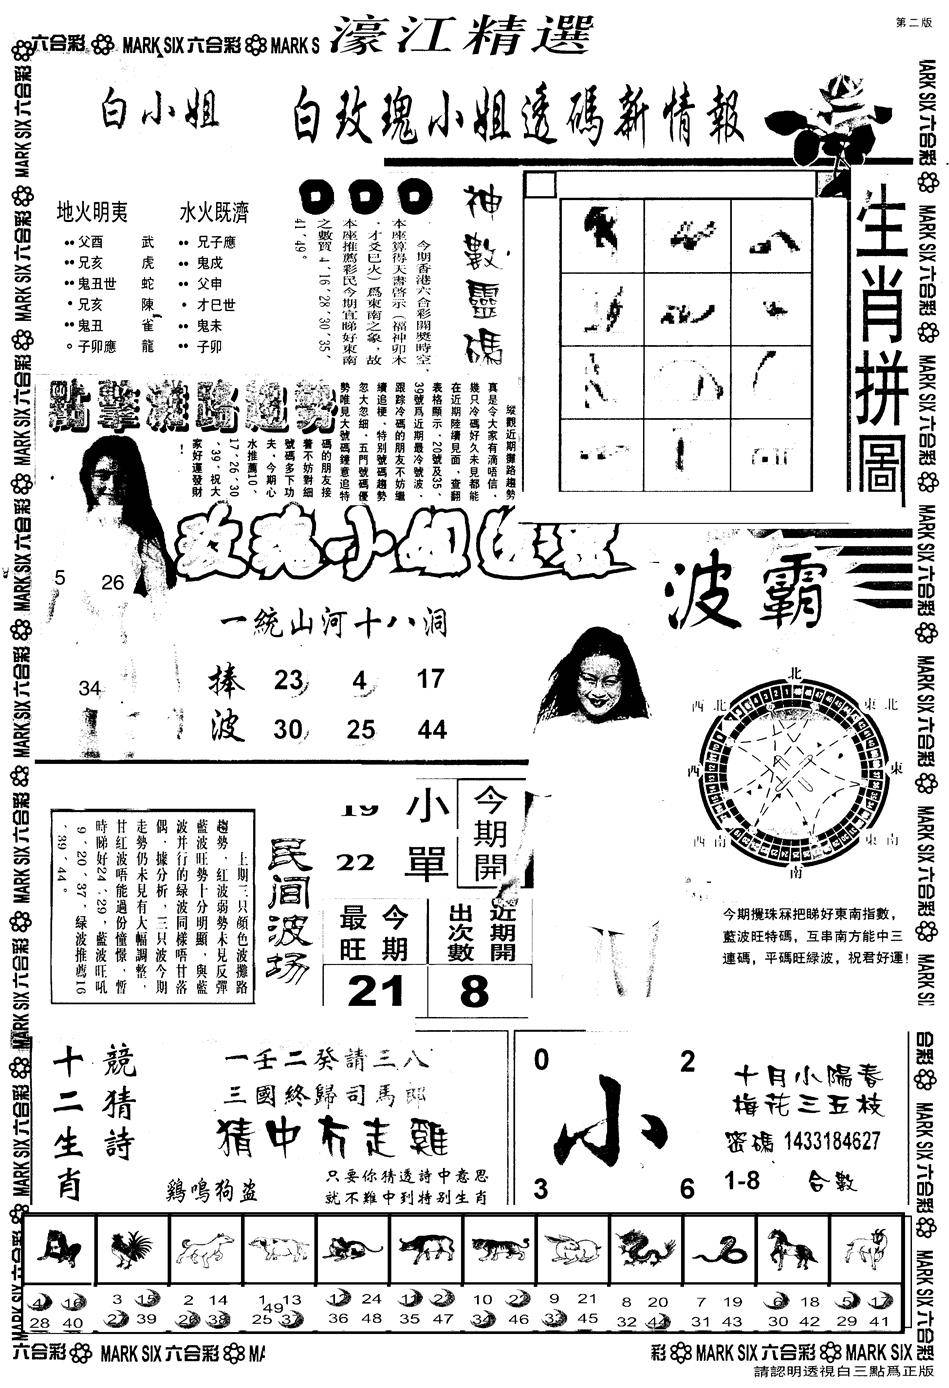 第二版
六合彩 MARK SIX 六合彩 MARK S
濠江精選
白小姐
白玫瑰小姐透碼新情報
地火明夷
水火既濟
父酉 武 兄子應
兄亥 虎 鬼戌
鬼丑世 蛇 父申
兄亥 陳 才巳世
鬼丑 雀 鬼未
子卯應 龍 子卯
神數靈碼
今期香港六合彩開獎時空,
本座算得天書啓示(福神卯木
,才爻巳火)爲東南之象,故
本座推薦彩民今期宜睇好東南
之數貿4、16、28、30、35、
41、49。
生肖拼圖
點擊攤路趨勢
縱觀近期攤路趨勢
真是令大家有滴唔信,
幾只冷碼好久未見都能
在近期陸續見面、查翻
表格顯示、20號及35、
39號爲近期最冷號波,
跟踪冷碼的朋友不妨繼
續追梗、特別號碼趨勢
忽大忽細、五門號碼優
勢唯見大號碼鐘意追特
碼的朋友接
着不妨對細
號碼多下功
夫、今期心
水推薦10、
17、26、30
、39,祝大
家好運發財
!
5
26
34
一統山河十八洞
捧波
23 4 17
30 25 44
波霸
北
西北 東北
西 東
西南 東南
南
今期攪珠冧把睇好東南指數,
藍波旺特碼,互串南方能中三
連碼,平碼旺緑波,祝君好運!
上期三只顔色波攤路
趨勢,紅波弱勢未見反彈
藍波旺勢十分明顯,與藍
波并行的緑波同樣唔甘落
偶,據分析,三只波今期
走勢仍未見有大幅調整,
甘紅波唔能過份憧憬,暫
時睇好24、29,藍波旺吼
9、20、37,緑波推薦16
、39、44。
民间波场
19 小
22 單
今期開
今期最旺
近期開出次數
21 8
競猜詩
十二生肖
一壬二癸請三八
三國終歸司馬郎
猜中冇走雞
鷄鳴狗盜
只要你猜透詩中意思
就不難中到特别生肖
0 2
小
3 6
十月小陽春
梅花三五枝
密碼 1433184627
1-8 合數
4 16 3 15 2 14 1 13 12 24 11 23 10 22 9 21 8 20 7 19 6 18 5 17
28 40 27 39 26 38 25 37 49 36 48 35 47 34 46 33 45 32 44 31 43 30 42 29 41
六合彩 MARK SIX 六合彩 MA
彩 MARK SIX 六合彩 MARK SIX 六合彩
請認明透視白三點爲正版